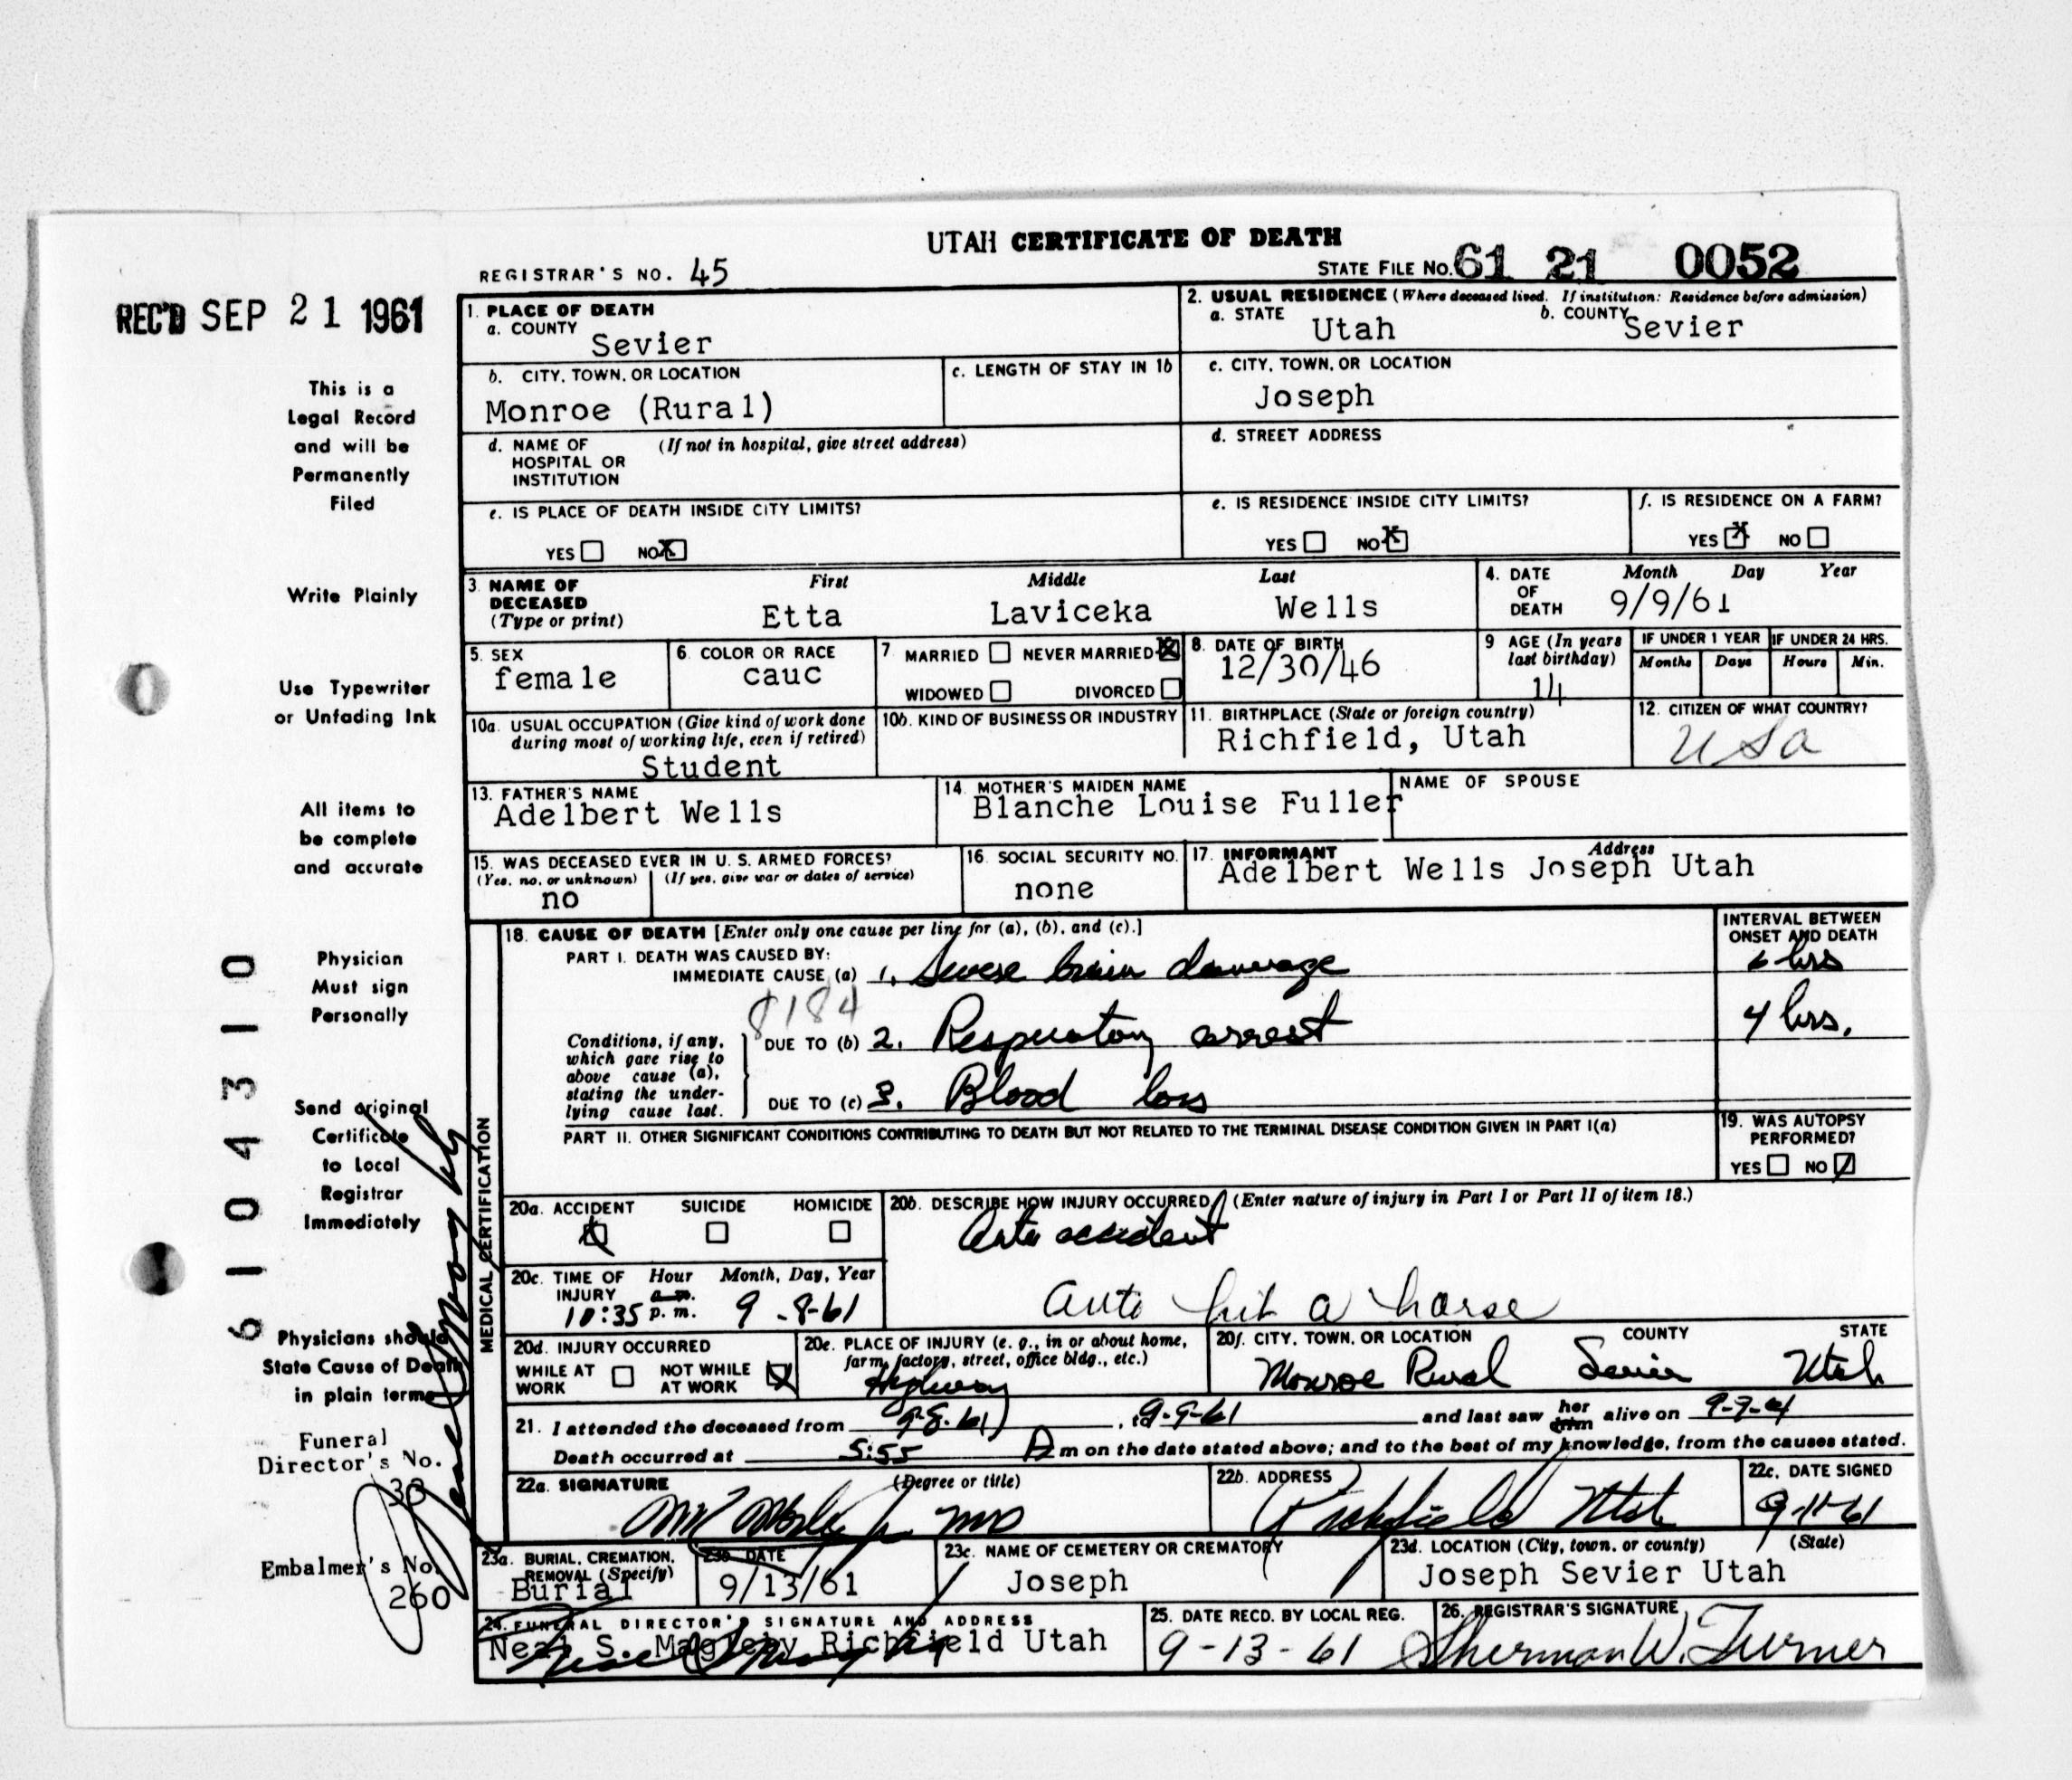 UTAH CERTIFICATE OF DEATH
REGISTRAR'S NO. 45
STATE FILE NO. 61 21 0052
REC'D SEP 21 1961
This is a
Legal Record
and will be
Permanently
Filed
Write Plainly
Use Typewriter
or Unfading Ink
All items to
be complete
and accurate
Physician
Must sign
Personally
Send original
Certificate
to Local
Registrar
Immediately
Physicians should
State Cause of Death
in plain terms
Funeral
Director's No.
33
Embalmer's No.
260
6104310
1. PLACE OF DEATH
a. COUNTY
Sevier
2. USUAL RESIDENCE (Where deceased lived. If institution: Residence before admission)
a. STATE
Utah
b. COUNTY
Sevier
b. CITY, TOWN, OR LOCATION
Monroe (Rural)
c. LENGTH OF STAY IN 1b
c. CITY, TOWN, OR LOCATION
Joseph
d. NAME OF HOSPITAL OR INSTITUTION
(If not in hospital, give street address)
d. STREET ADDRESS
e. IS PLACE OF DEATH INSIDE CITY LIMITS?
YES NO X
e. IS RESIDENCE INSIDE CITY LIMITS?
YES NO X
f. IS RESIDENCE ON A FARM?
YES X NO
3. NAME OF DECEASED (Type or print)
First Middle Last
Etta Laviceka Wells
4. DATE OF DEATH
Month Day Year
9/9/61
5. SEX
female
6. COLOR OR RACE
cauc
7. MARRIED NEVER MARRIED X
WIDOWED DIVORCED
8. DATE OF BIRTH
12/30/46
9 AGE (In years last birthday)
14
IF UNDER 1 YEAR
Months Days
IF UNDER 24 HRS.
Hours Min.
10a. USUAL OCCUPATION (Give kind of work done during most of working life, even if retired)
Student
10b. KIND OF BUSINESS OR INDUSTRY
11. BIRTHPLACE (State or foreign country)
Richfield, Utah
12. CITIZEN OF WHAT COUNTRY?
USA
13. FATHER'S NAME
Adelbert Wells
14. MOTHER'S MAIDEN NAME
Blanche Louise Fuller
NAME OF SPOUSE
15. WAS DECEASED EVER IN U. S. ARMED FORCES?
(Yes, no, or unknown) (If yes, give war or dates of service)
no
16. SOCIAL SECURITY NO.
none
17. INFORMANT Address
Adelbert Wells Joseph Utah
MEDICAL CERTIFICATION
18. CAUSE OF DEATH [Enter only one cause per line for (a), (b), and (c).]
INTERVAL BETWEEN ONSET AND DEATH
PART I. DEATH WAS CAUSED BY:
IMMEDIATE CAUSE (a) 1. Severe brain damage
6 hrs
8184
Conditions, if any, which gave rise to above cause (a), stating the underlying cause last.
DUE TO (b) 2. Respiratory arrest
4 hrs.
DUE TO (c) 3. Blood loss
PART II. OTHER SIGNIFICANT CONDITIONS CONTRIBUTING TO DEATH BUT NOT RELATED TO THE TERMINAL DISEASE CONDITION GIVEN IN PART I(a)
19. WAS AUTOPSY PERFORMED?
YES NO
20a. ACCIDENT SUICIDE HOMICIDE
20b. DESCRIBE HOW INJURY OCCURRED (Enter nature of injury in Part I or Part II of item 18.)
Auto accident
auto hit a horse
20c. TIME OF INJURY Hour Month, Day, Year
10:35 a.m. p.m. 9-8-61
20d. INJURY OCCURRED
WHILE AT WORK NOT WHILE AT WORK
20e. PLACE OF INJURY (e. g., in or about home, farm, factory, street, office bldg., etc.)
Highway
20f. CITY, TOWN, OR LOCATION COUNTY STATE
Monroe Rural Sevier Utah
21. I attended the deceased from 9-8-61, to 9-9-61 and last saw her him alive on 9-9-61
Death occurred at 5:55 A m on the date stated above; and to the best of my knowledge, from the causes stated.
22a. SIGNATURE (Degree or title)
MD
22b. ADDRESS
Richfield Utah
22c. DATE SIGNED
9-11-61
23a. BURIAL, CREMATION, REMOVAL (Specify)
Burial
23b. DATE
9/13/61
23c. NAME OF CEMETERY OR CREMATORY
Joseph
23d. LOCATION (City, town, or county) (State)
Joseph Sevier Utah
24. FUNERAL DIRECTOR'S SIGNATURE AND ADDRESS
Neal S. Magleby Richfield Utah
25. DATE RECD. BY LOCAL REG.
9-13-61
26. REGISTRAR'S SIGNATURE
Sherman W. Turner